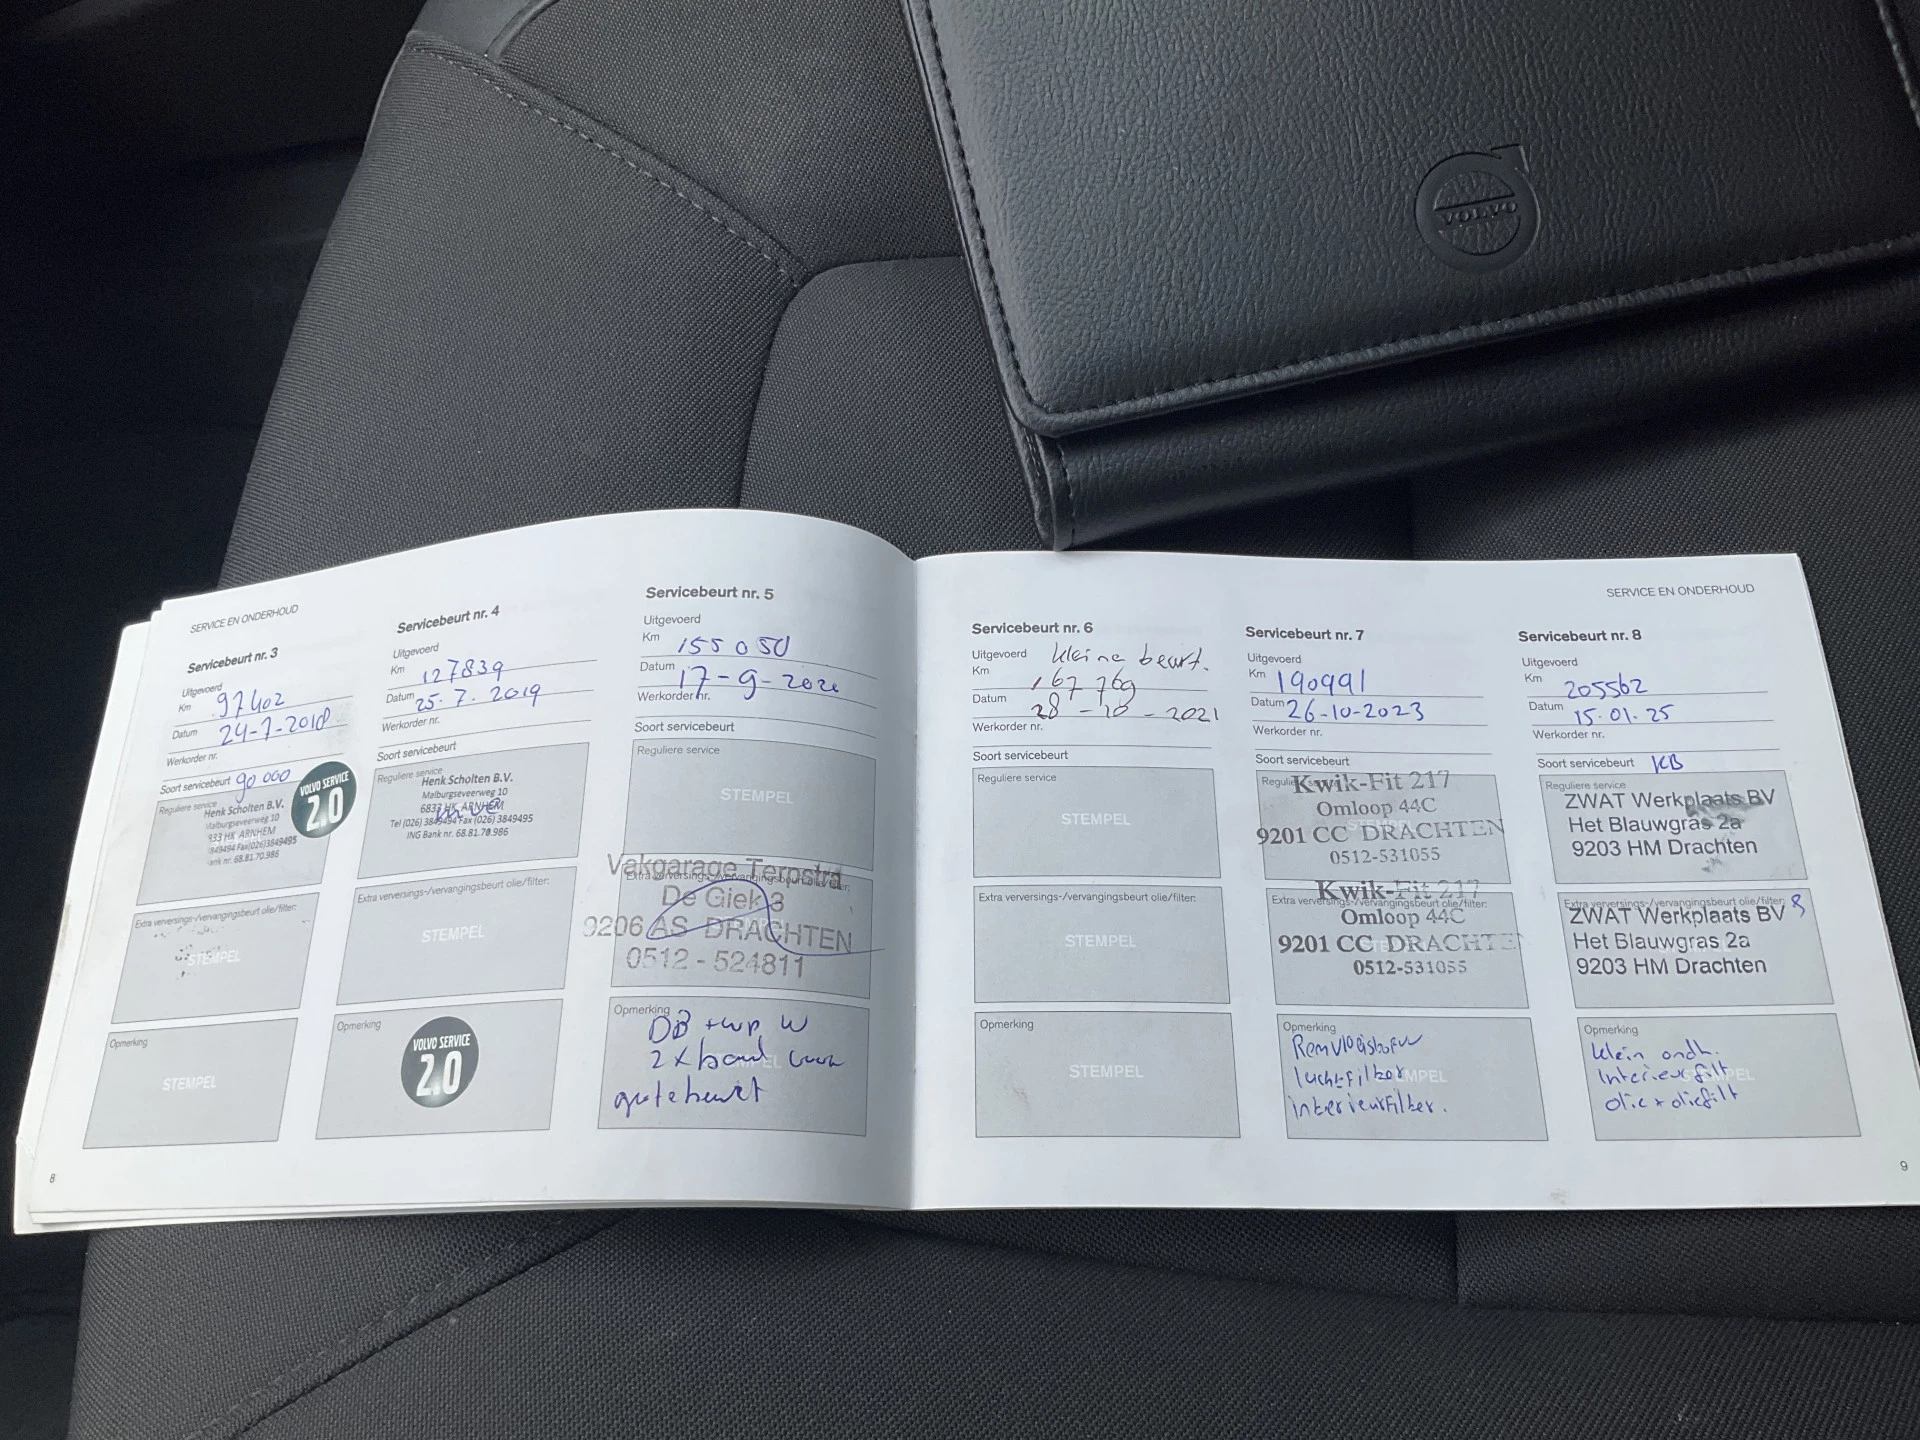 VOLVO
SERVICE EN ONDERHOUD
Servicebeurt nr. 3
Uitgevoerd
Km 97402
Datum 24-7-2018
Werkorder nr.
Soort servicebeurt 90 000
VOLVO SERVICE
2.0
Reguliere service
Henk Scholten B.V.
Malburgseveerweg 10
833 HK ARNHEM
849494 Fax(026)3849495
ank nr. 68.81.70.986
Extra verversings-/vervangingsbeurt olie/filter:
STEMPEL
Opmerking
STEMPEL
8
Servicebeurt nr. 4
Uitgevoerd
Km 127839
Datum 25.7.2019
Werkorder nr.
Soort servicebeurt
Reguliere service
Henk Scholten B.V.
Malburgseveerweg 10
6833 HK ARNHEM
Tel (026) 3849494 Fax (026) 3849495
ING Bank nr. 68.81.70.986
Extra verversings-/vervangingsbeurt olie/filter:
STEMPEL
Opmerking
VOLVO SERVICE
2.0
Servicebeurt nr. 5
Uitgevoerd
Km 155050
Datum 17-9-2020
Werkorder nr.
Soort servicebeurt
Reguliere service
STEMPEL
Vakgarage Terpstra
Extra verversings-/vervangingsbeurt olie/filter:
De Giek 3
9206 AS DRACHTEN
0512 - 524811
Opmerking
DB + wp W
2 x band
STEMPEL
grote beurt
SERVICE EN ONDERHOUD
Servicebeurt nr. 6
Uitgevoerd kleine beurt.
Km 167 769
Datum 28-10-2021
Werkorder nr.
Soort servicebeurt
Reguliere service
STEMPEL
Extra verversings-/vervangingsbeurt olie/filter:
STEMPEL
Opmerking
STEMPEL
Servicebeurt nr. 7
Uitgevoerd
Km 190991
Datum 26-10-2023
Werkorder nr.
Soort servicebeurt
Reguliere service
Kwik-Fit 217
Omloop 44C
9201 CC DRACHTEN
0512-531055
Kwik-Fit 217
Extra verversings-/vervangingsbeurt olie/filter:
Omloop 44C
9201 CC DRACHTEN
0512-531055
Opmerking
Remvloeistof
luchtfilter
STEMPEL
interieurfilter.
Servicebeurt nr. 8
Uitgevoerd
Km 205562
Datum 15.01.25
Werkorder nr.
Soort servicebeurt KB
Reguliere service
ZWAT Werkplaats BV
Het Blauwgras 2a
9203 HM Drachten
Extra verversings-/vervangingsbeurt olie/filter:
ZWAT Werkplaats BV
Het Blauwgras 2a
9203 HM Drachten
Opmerking
klein ondh.
Interieurfilt
STEMPEL
olie + oliefilt
9